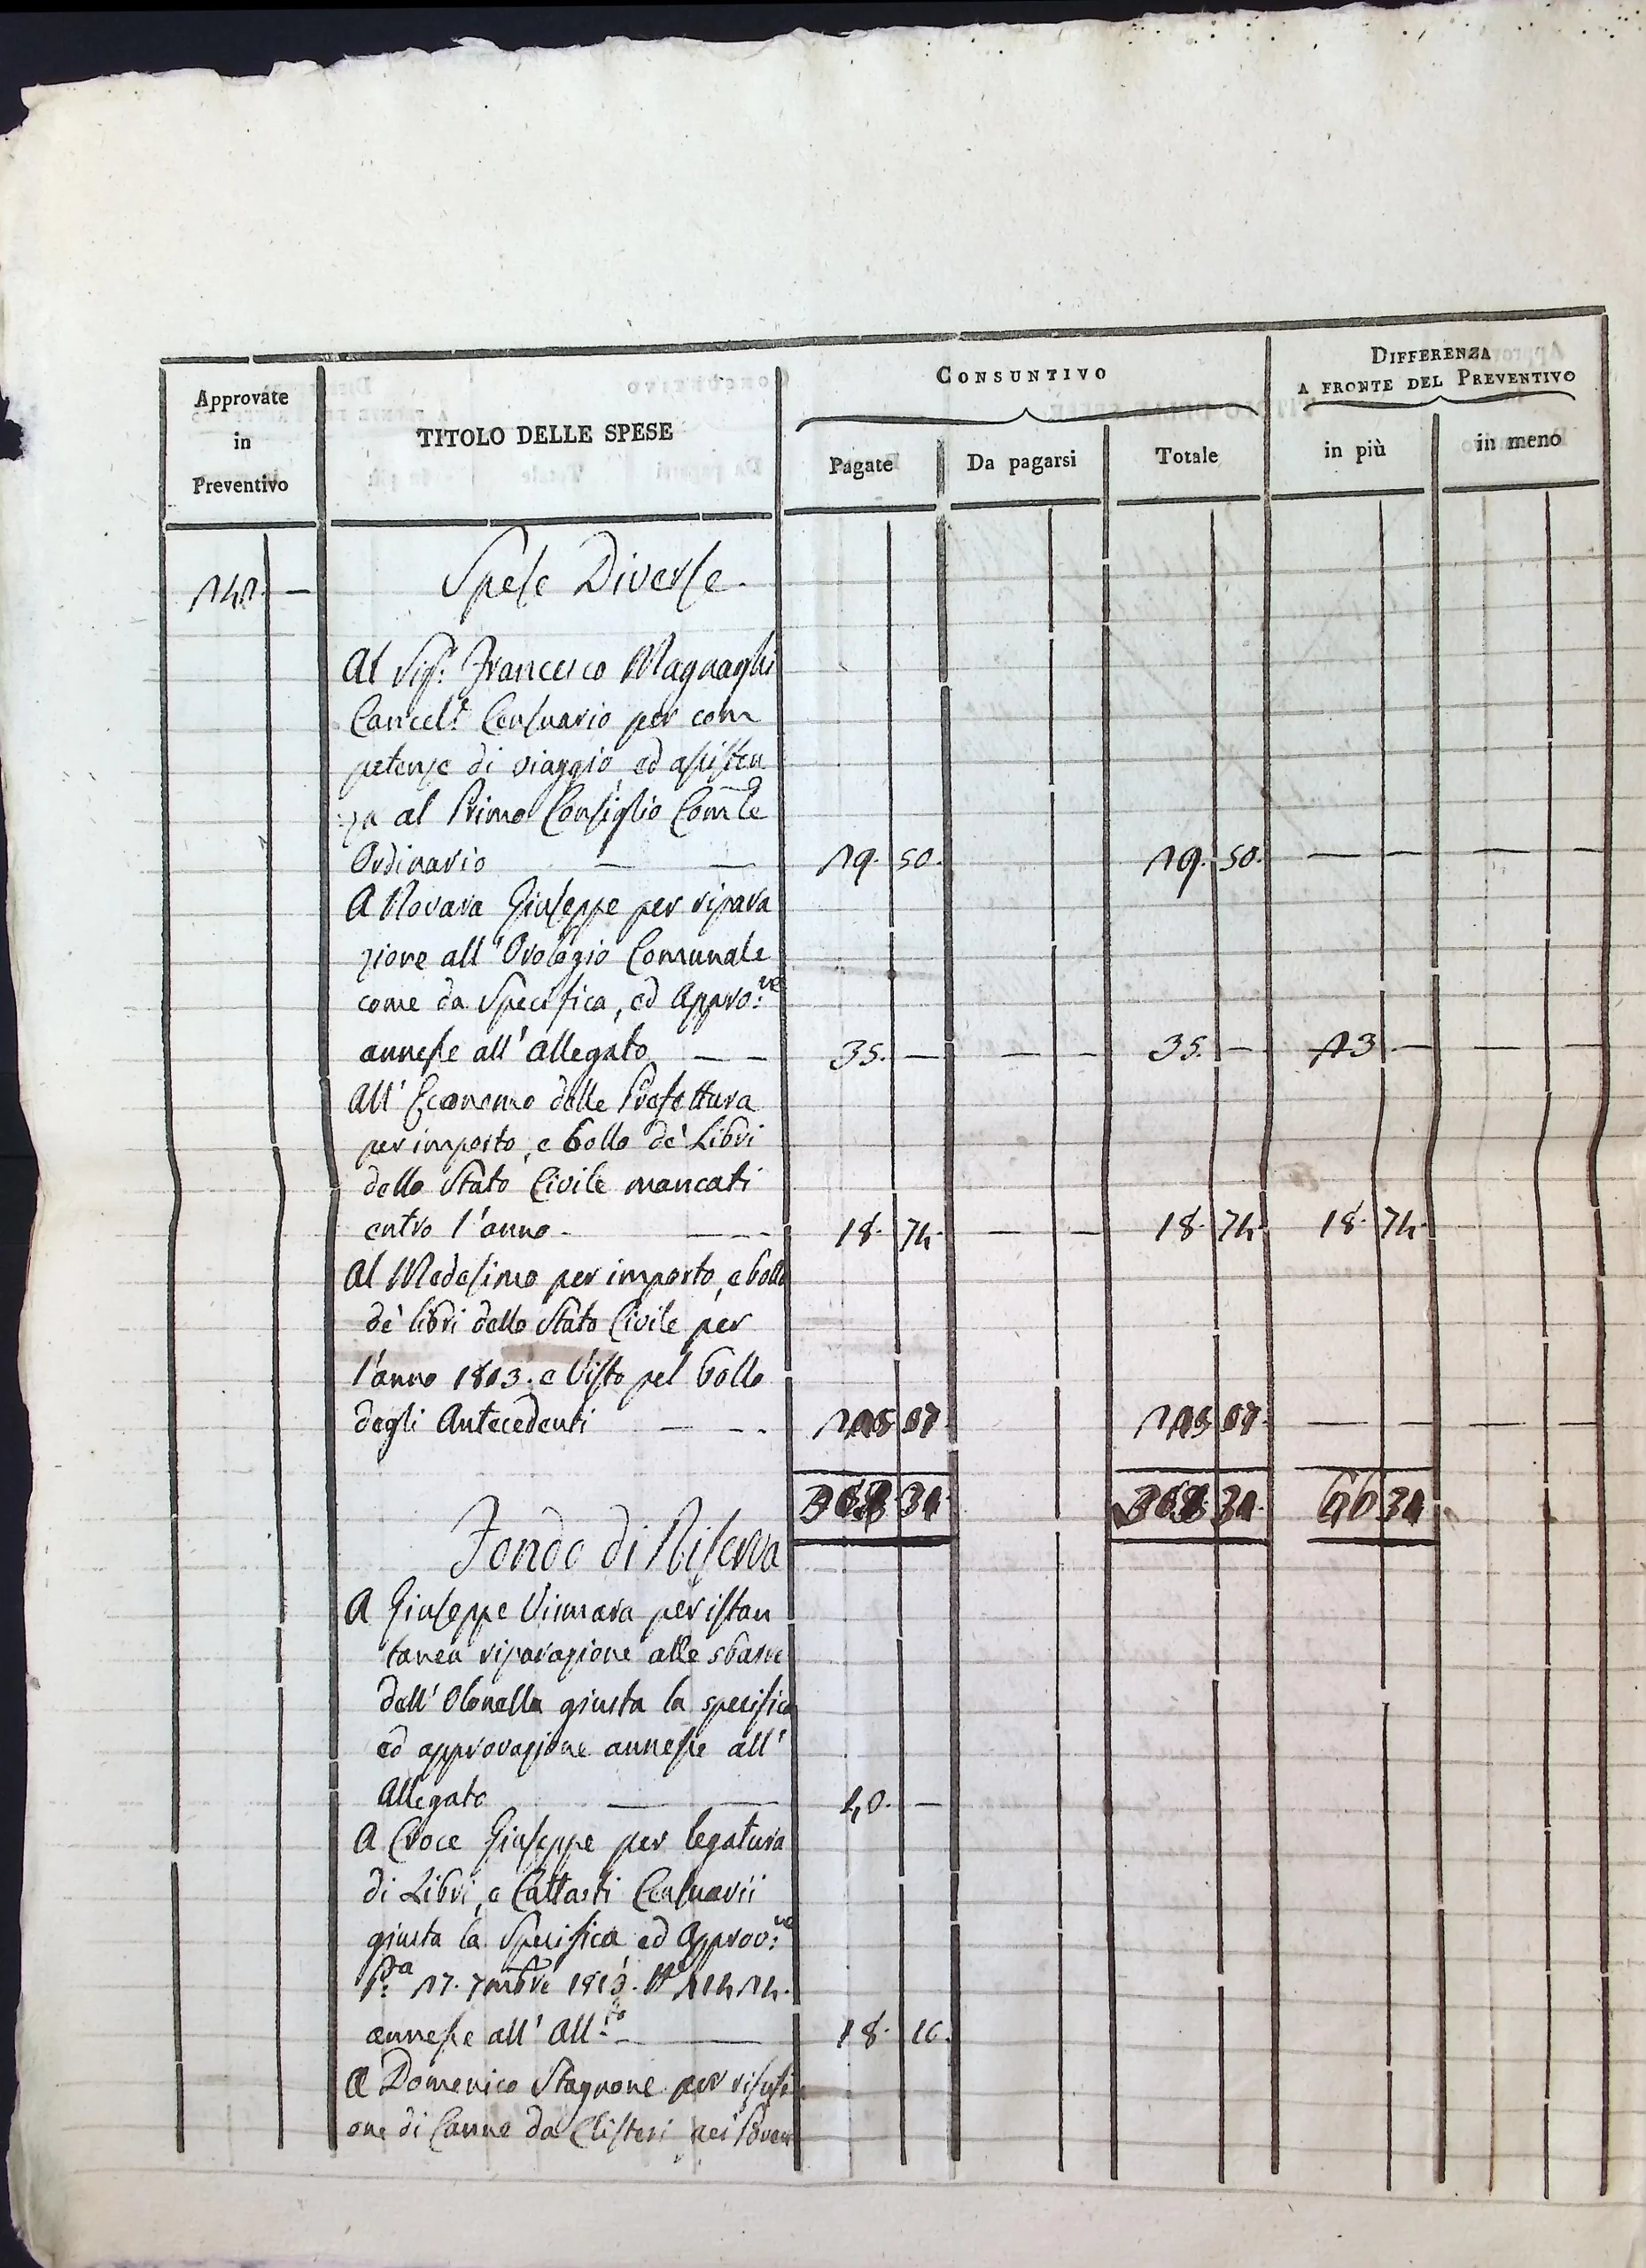 Approvate
in
Preventivo
TITOLO DELLE SPESE
CONSUNTIVO
Pagate
Da pagarsi
Totale
DIFFERENZA
A FRONTE DEL PREVENTIVO
in più
in meno
Spese Diverse.
Al Sigr. Francesco Magnaghi
Cancel.e Censuario per com
petenze di viaggio, ed assisten
za al Primo Consiglio Com.le
Ordinario — — 19. 50. 19. 50. — — — —
A Novara Giuseppe per ripara
zione all'Orologio Comunale
come da Specifica, ed Appro:ne
annesse all'allegato — — 35. — — — 35. — 13. — — —
All'Economo della Prefettura
per importo, e bollo de' Libri
dello Stato Civile mancati
entro l'anno. — 18. 74. — — 18. 74. 18. 74.
Al Medesimo per importo, e bollo
de' libri dello Stato Civile per
l'anno 1813. e Visto pel bollo
degli Antecedenti — — — — — —
Fondo di Riserva
A Giuseppe Vimara per istan
tanea riparazione alle sbarre
dell'Olonella giusta la specifica
ed approvazione annesse all'
Allegato — — 40. —
A Croce Giuseppe per legatura
di Libri, e Cattasti Censuarii
giusta la Specifica, ed Approv:ne
17. 7mbre 1813.
annesse all'All:to — 18. 16.
A Domenico Stagnone per
one di Canne da Clisteri pei